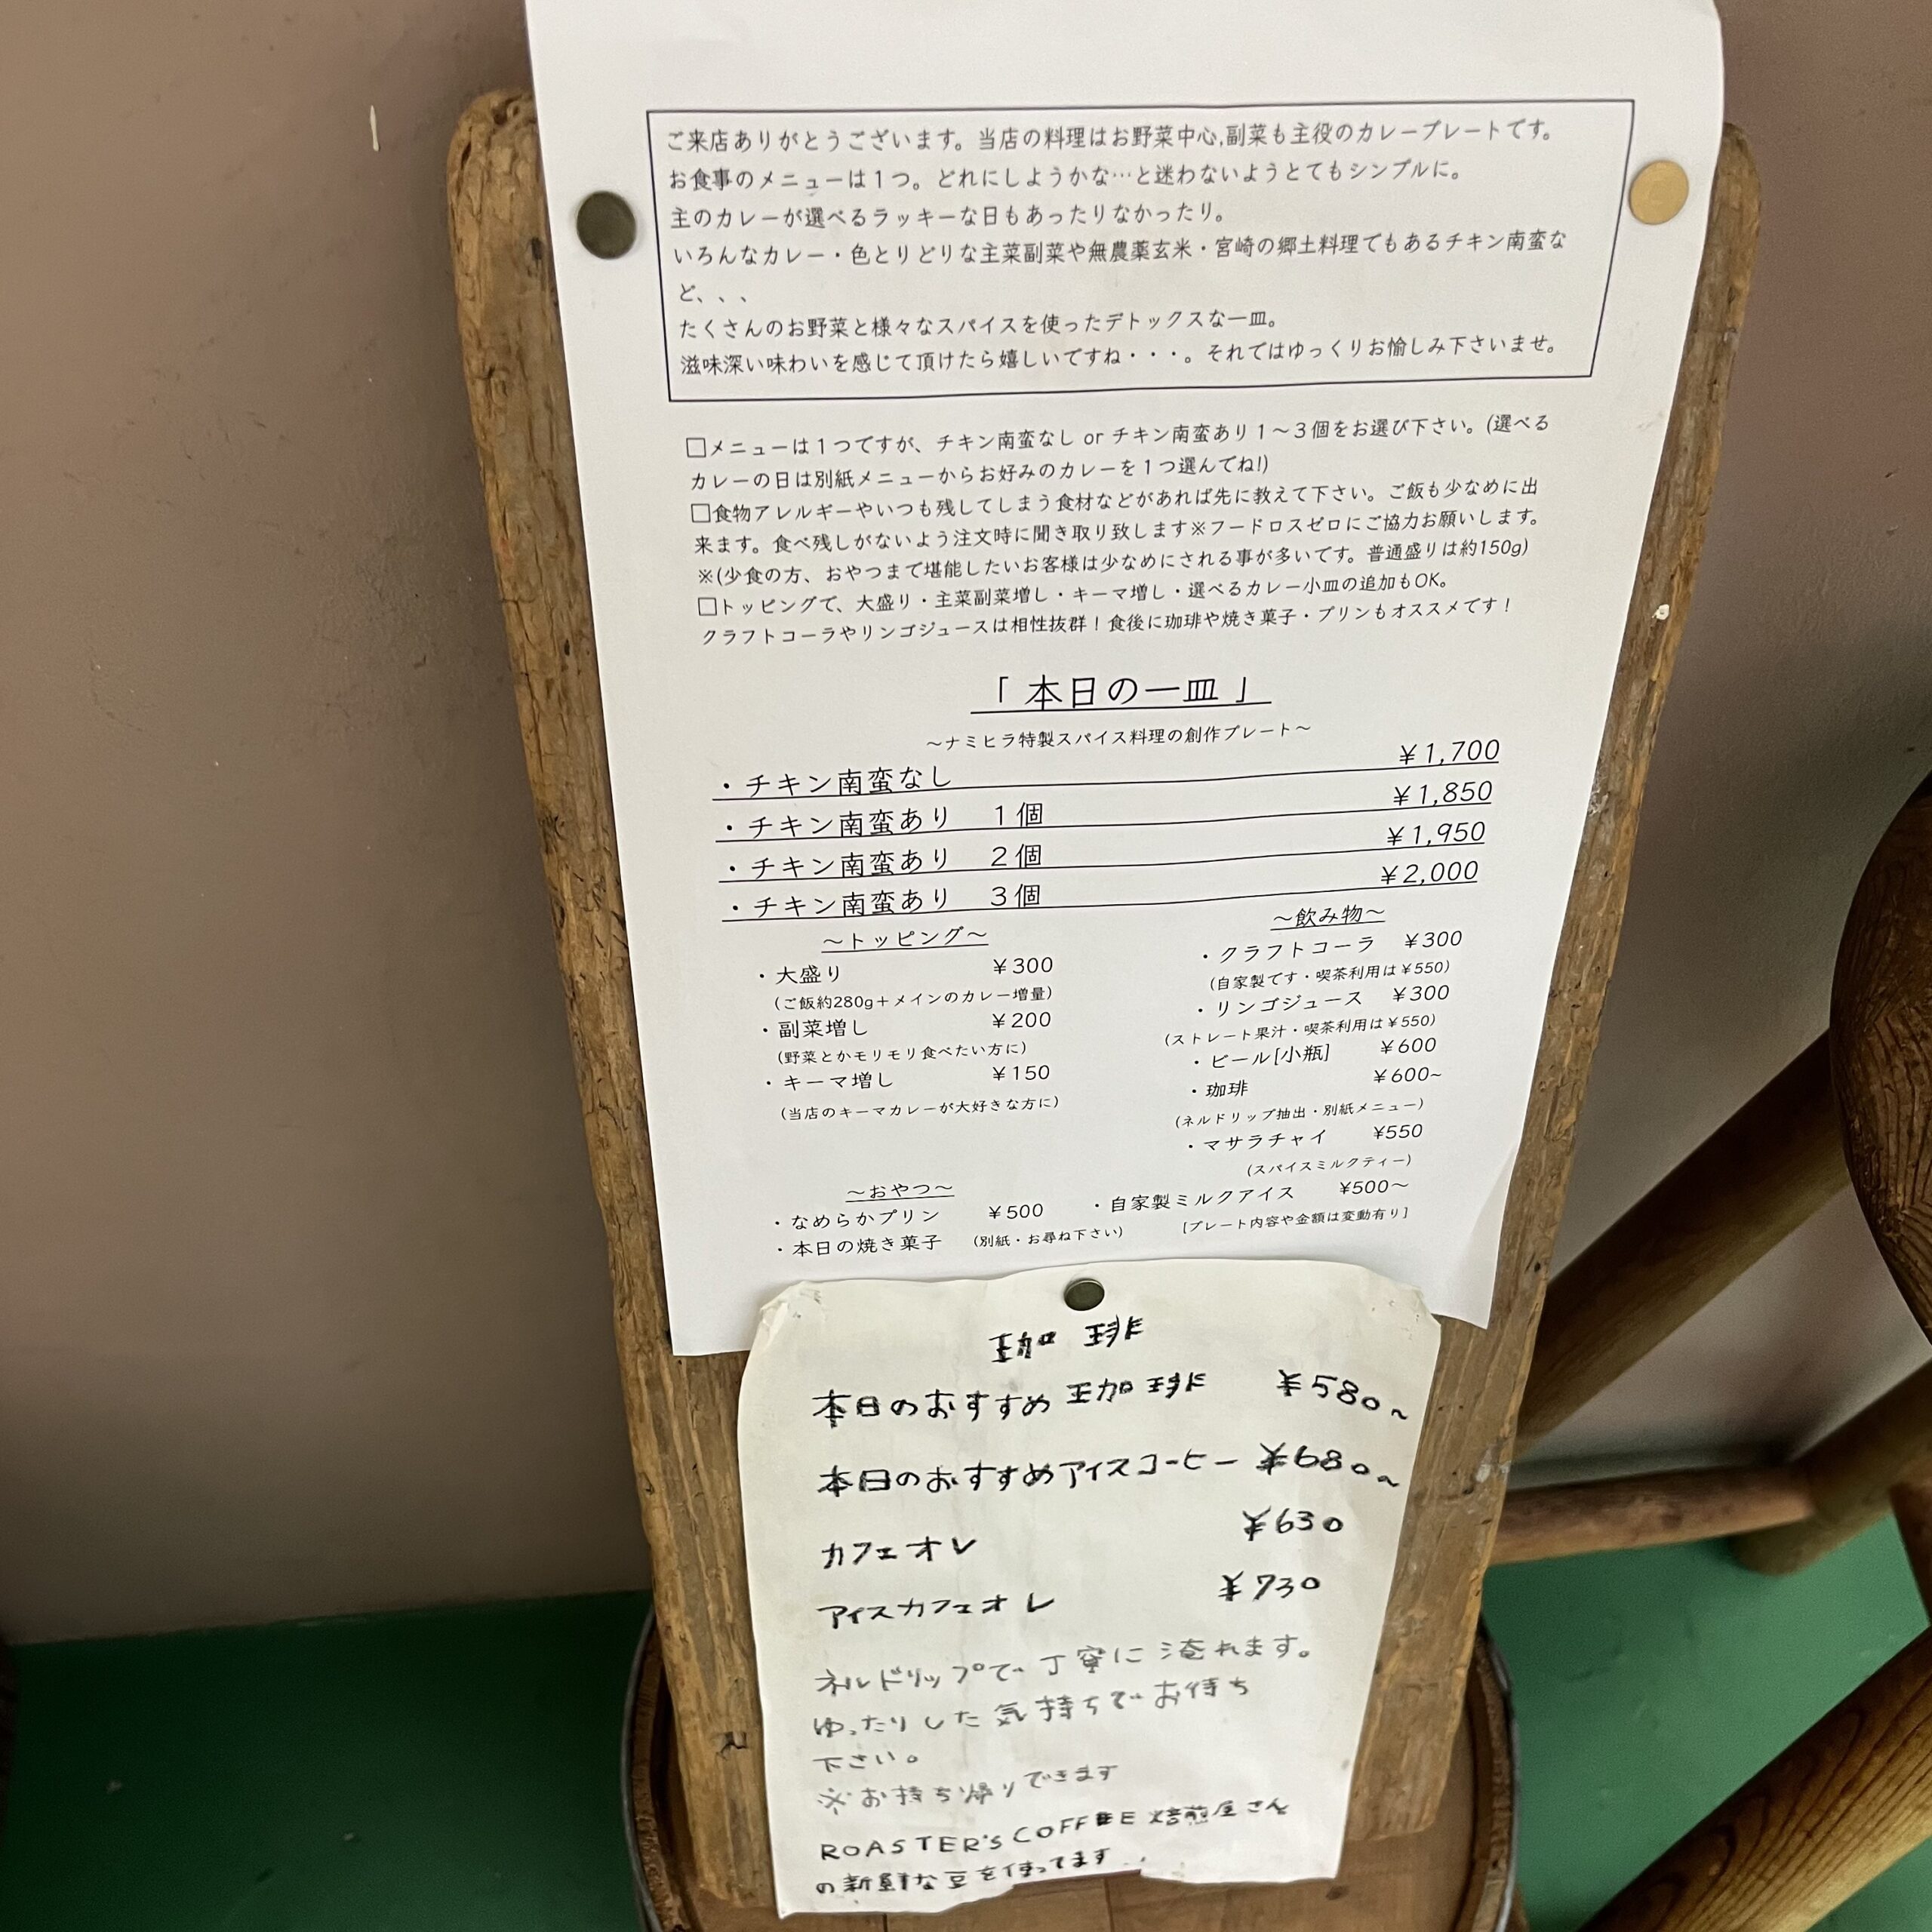 ご来店ありがとうございます。当店の料理はお野菜中心,副菜も主役のカレープレートです。
お食事のメニューは１つ。どれにしようかな…と迷わないようとてもシンプルに。
主のカレーが選べるラッキーな日もあったりなかったり。
いろんなカレー・色とりどりな主菜副菜や無農薬玄米・宮崎の郷土料理でもあるチキン南蛮な
ど、、、
たくさんのお野菜と様々なスパイスを使ったデトックスな一皿。
滋味深い味わいを感じて頂けたら嬉しいですね・・・。それではゆっくりお愉しみ下さいませ。
□メニューは１つですが、チキン南蛮なし or チキン南蛮あり１～３個をお選び下さい。(選べる
カレーの日は別紙メニューからお好みのカレーを１つ選んでね!)
□食物アレルギーやいつも残してしまう食材などがあれば先に教えて下さい。ご飯も少なめに出
来ます。食べ残しがないよう注文時に聞き取り致します※フードロスゼロにご協力お願いします。
※(少食の方、おやつまで堪能したいお客様は少なめにされる事が多いです。普通盛りは約150g)
□トッピングで、大盛り・主菜副菜増し・キーマ増し・選べるカレー小皿の追加もOK。
クラフトコーラやリンゴジュースは相性抜群！食後に珈琲や焼き菓子・プリンもオススメです！
「 本日の一皿 」
～ナミヒラ特製スパイス料理の創作プレート～
・チキン南蛮なし ￥1,700
・チキン南蛮あり １個 ￥1,850
・チキン南蛮あり ２個 ￥1,950
・チキン南蛮あり ３個 ￥2,000
～トッピング～
・大盛り ￥300
(ご飯約280g＋メインのカレー増量)
・副菜増し ￥200
(野菜とかモリモリ食べたい方に)
・キーマ増し ￥150
(当店のキーマカレーが大好きな方に)
～飲み物～
・クラフトコーラ ￥300
(自家製です・喫茶利用は￥550)
・リンゴジュース ￥300
(ストレート果汁・喫茶利用は￥550)
・ビール[小瓶] ￥600
・珈琲 ￥600~
(ネルドリップ抽出・別紙メニュー)
・マサラチャイ ¥550
(スパイスミルクティー)
～おやつ～
・なめらかプリン ￥500 ・自家製ミルクアイス ¥500～
・本日の焼き菓子 (別紙・お尋ね下さい) [プレート内容や金額は変動有り]
珈琲
本日のおすすめ珈琲 ¥580~
本日のおすすめアイスコーヒー ¥680~
カフェオレ ¥630
アイスカフェオレ ¥730
ネルドリップで丁寧に淹れます。
ゆったりした気持ちでお待ち
下さい。
※お持ち帰りできます
ROASTER'S COFFEE 焙煎屋さん
の新鮮な豆を使ってます...